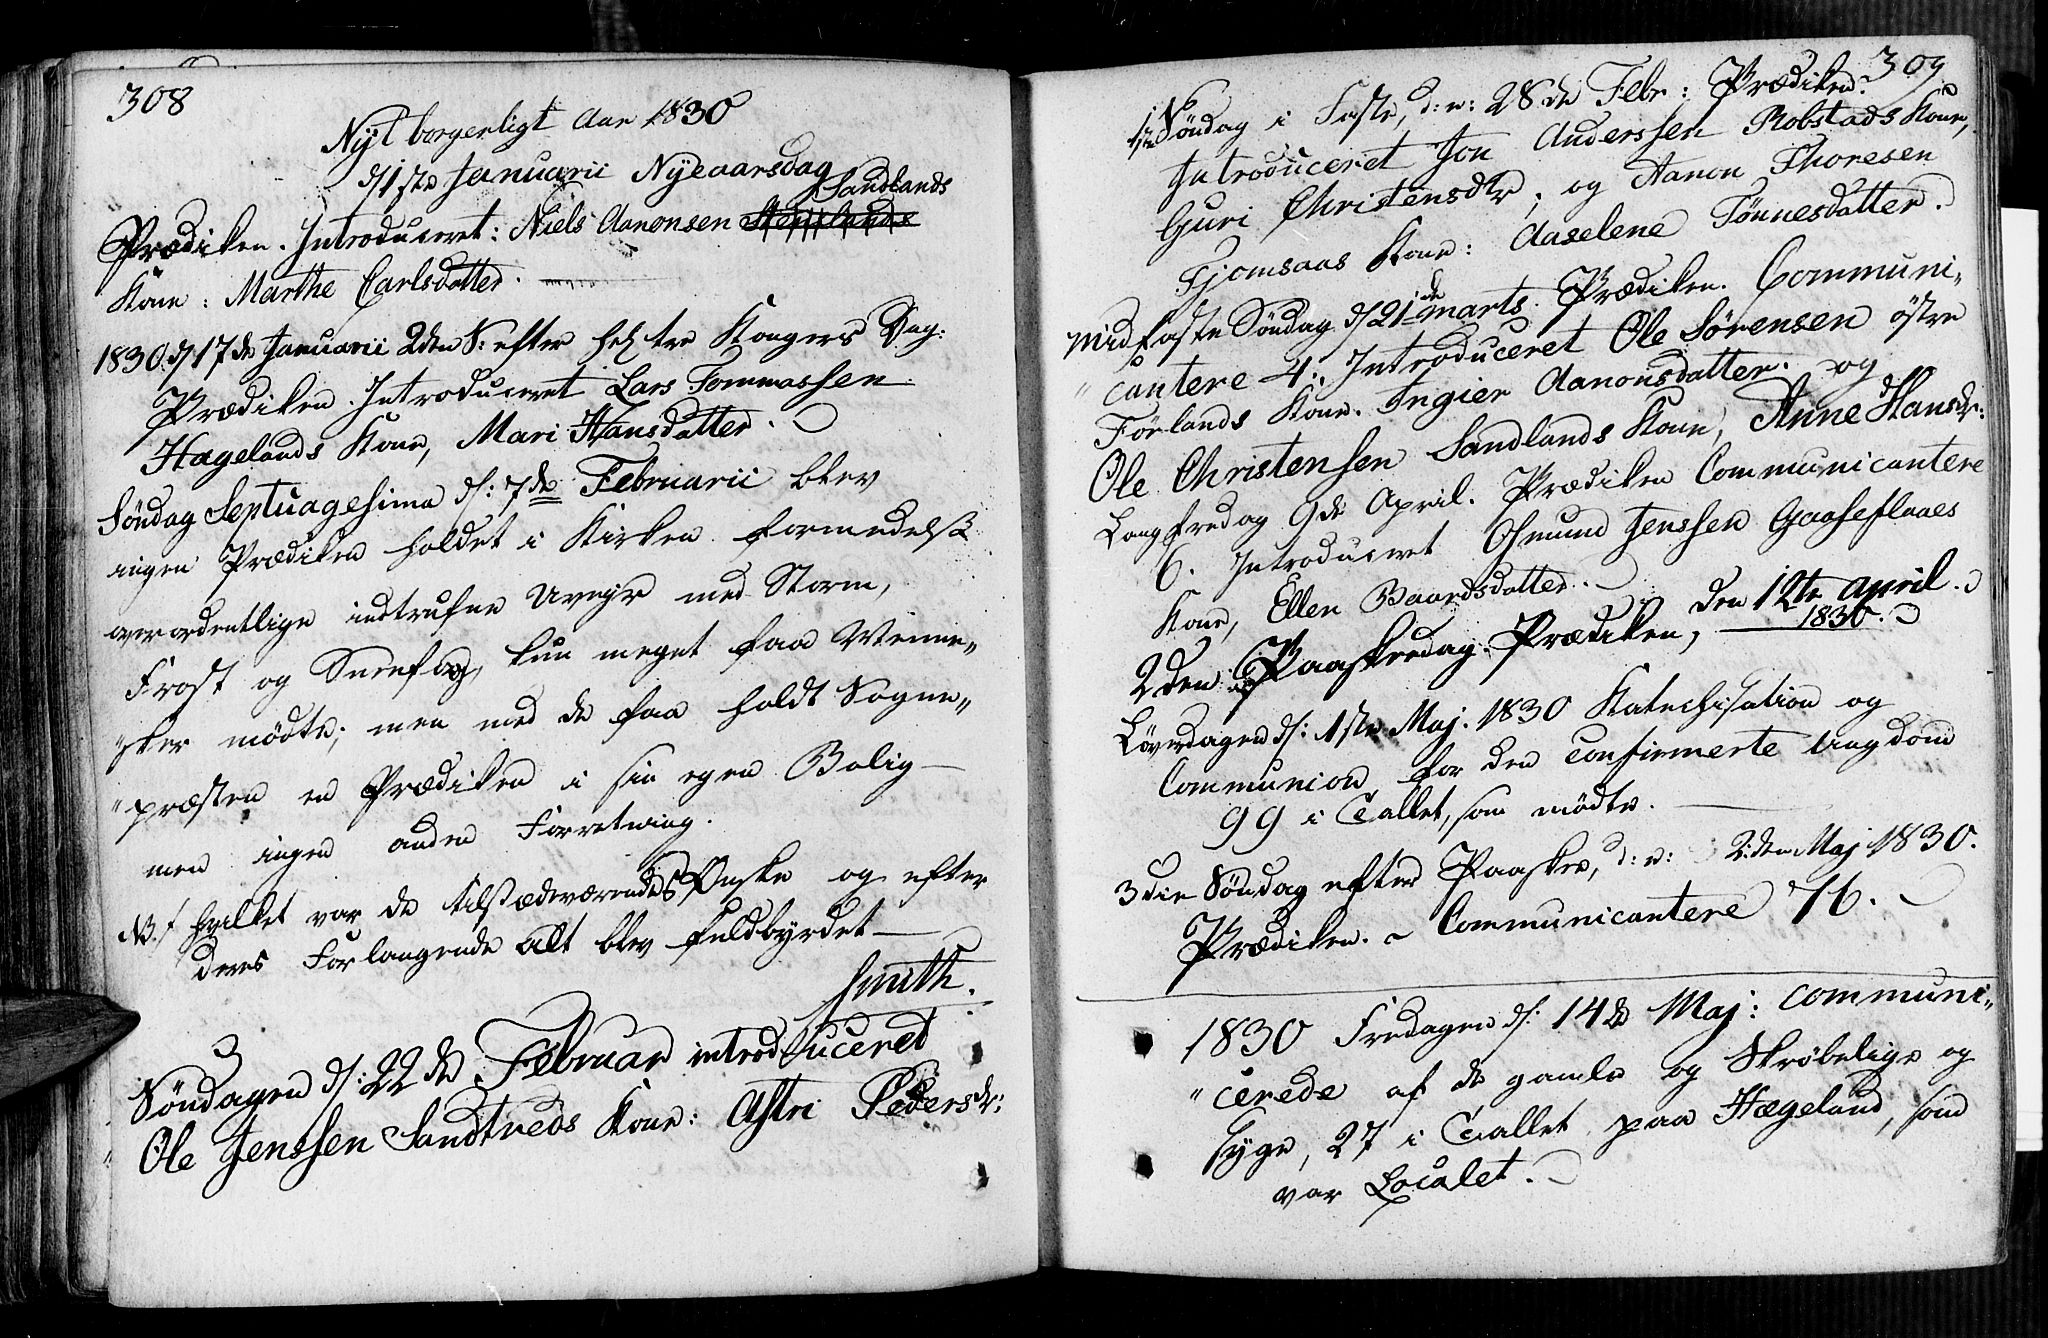 308
Nyt borgerligt Aar 1830
d/ 1ste Januarii Nyeaarsdag
Sandlands
Prædiken. Introduceret: Niels Aanonsen
Kone: Marthe Carlsdatter.
1830 d/ 17de Januarii 2den S: efter hel: tre Kongers Dag:
Prædiken. Introduceret Lars Tommassen
Hægelands Kone, Mari Hansdatter.
Søndag Septuagesima d/: 7de Februarii blev
ingen Prædiken holdet i Kirken formedelst
overordentlige indtrufne Uvejr med Storm,
Frost og Sneefog, kun meget faa Menne„
„sker mödte; men med de faa holdt Sogne„
„præsten en Prædiken i sin egen Bolig —
men ingen anden Forretning.
NB. hvilket var de tilstædeværendes Ønske og efter
deres Forlangende alt blev fuldbyrdet —
Smith.
Søndagen d/: 22de Februar introduceret
Ole Jenssen Sandtveds Kone: Astri Pedersdr:
309
1ste Søndag i Faste, d: e: 28de Febr: Prædiken.
Introduceret Jon Anderssen Robstads Kone,
Guri Christensdr, og Aanon Thoresen
Fjomsaas Kone: Aaselene Tönnesdatter.
Midfaste Søndag d/ 21de Marts. Prædiken. Communi„
„cantere 4. Introduceret Ole Sörensen östre
Förlands Kone. Ingier Aanonsdatter. og
Ole Christensen Sandlands Kone, Anne Hansdr:
Langfredag 9de April. Prædiken Communicantere
6. Introduceret Osmund Jenssen Gaaseflaaes
Kone, Ellen Baardsdatter.
2den Paaskedag Prædiken, den 12te April.
1830.
Löverdagen d/: 1ste Maj. 1830 Katechisation og
Communion for den confirmerte Ungdom
99 i Tallet, som mödte.
3die Søndag efter Paaske, d: e: 2den Maj 1830.
Prædiken. Communicantere 76.
1830 Fredagen d/: 14de Maj: communi„
„cerede af de gamle og Skröbelige og
Syge, 27 i Tallet paa Hægeland, som
var Localet.